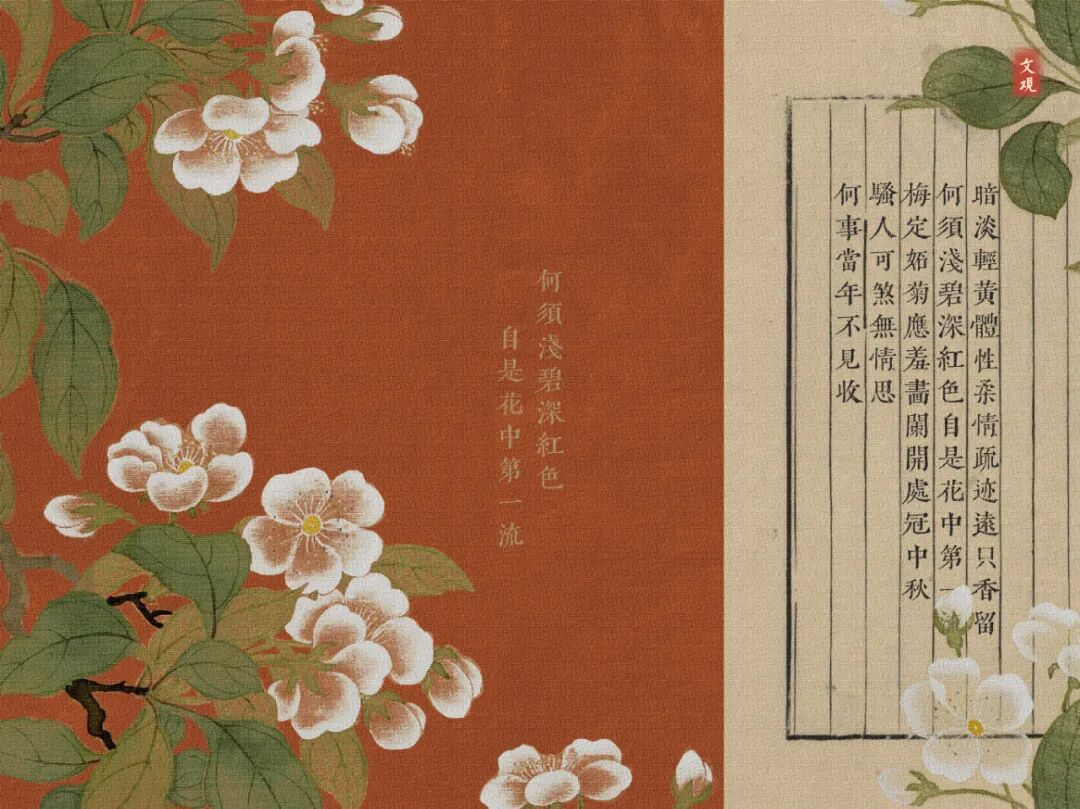 文覌
暗淡輕黃體性柔情疏迹遠只香留
何須淺碧深紅色自是花中第一
梅定妬菊應羞畵闌開處冠中秋
騷人可煞無情思
何事當年不見收
何須淺碧深紅色
自是花中第一流